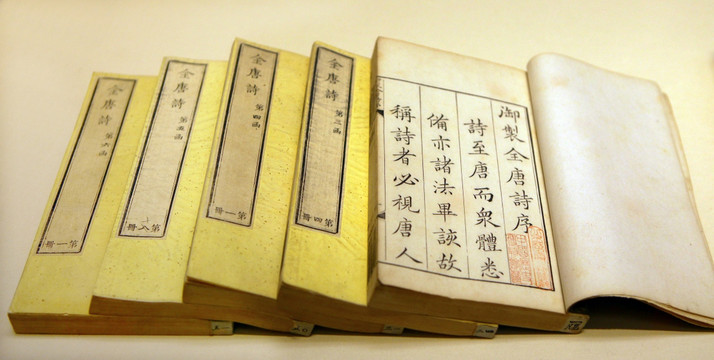 全唐詩 第六函
第一冊
全唐詩 第五函
第八冊
全唐詩 第四函
第一冊
全唐詩 第三函
第四冊
御製全唐詩序
詩至唐而衆體悉
備亦諸法畢該故
稱詩者必視唐人